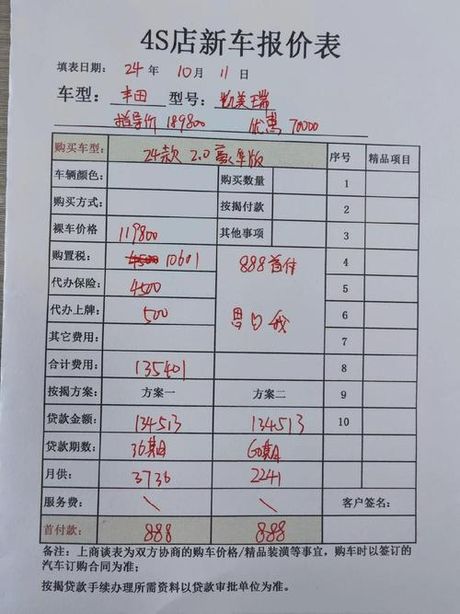 4S店新车报价表
填表日期: 24 年 10 月 11 日
车型: 丰田 型号: 凯美瑞
指导价 189800 优惠 70000
购买车型: 24款 2.0 豪华版 序号 精品项目
车辆颜色: 购买数量 1
购买方式: 按揭付款 2
裸车价格 119800 其他事项 3
购置税: 4500 10601 888首付 4
代办保险: 4500 5
代办上牌: 500 我 6
其它费用: 7
合计费用: 135401 8
按揭方案: 方案一 方案二 9
贷款金额: 134513 134513 10
贷款期数: 36期 60期
月供: 3736 2241
服务费: \ \ 客户签名:
首付款: 888 888
备注:上商谈表为双方协商的购车价格/精品装潢等事宜,购车时以签订的
汽车订购合同为准;
按揭贷款手续办理所需资料以贷款审批单位为准。